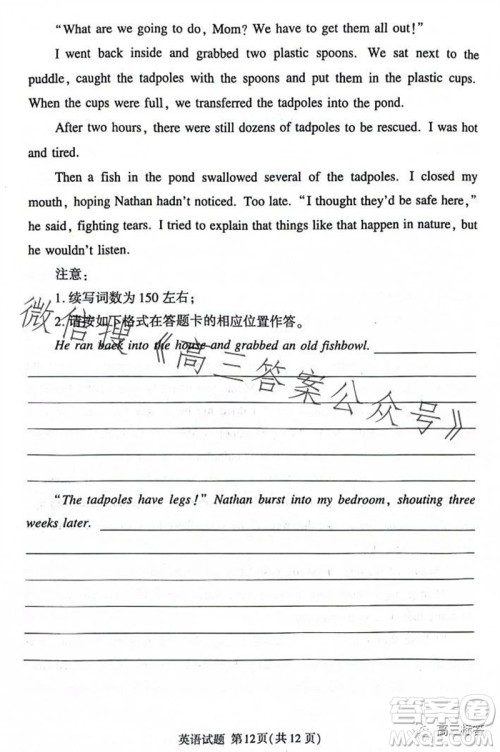 "What are we going to do, Mom? We have to get them all out!"
I went back inside and grabbed two plastic spoons. We sat next to the
puddle, caught the tadpoles with the spoons and put them in the plastic cups.
When the cups were full, we transferred the tadpoles into the pond.
After two hours, there were still dozens of tadpoles to be rescued. I was hot
and tired.
Then a fish in the pond swallowed several of the tadpoles. I closed my
mouth, hoping Nathan hadn't noticed. Too late. "I thought they'd be safe here,"
he said, fighting tears. I tried to explain that things like that happen in nature, but
he wouldn't listen.
注意:
1. 续写词数为 150 左右;
2. 请按如下格式在答题卡的相应位置作答。
He ran back into the house and grabbed an old fishbowl.
微信搜《高三答案公众号》
"The tadpoles have legs!" Nathan burst into my bedroom, shouting three
weeks later.
英语试题 第12页(共12页)
答案圈
高三标答
MXQE.COM